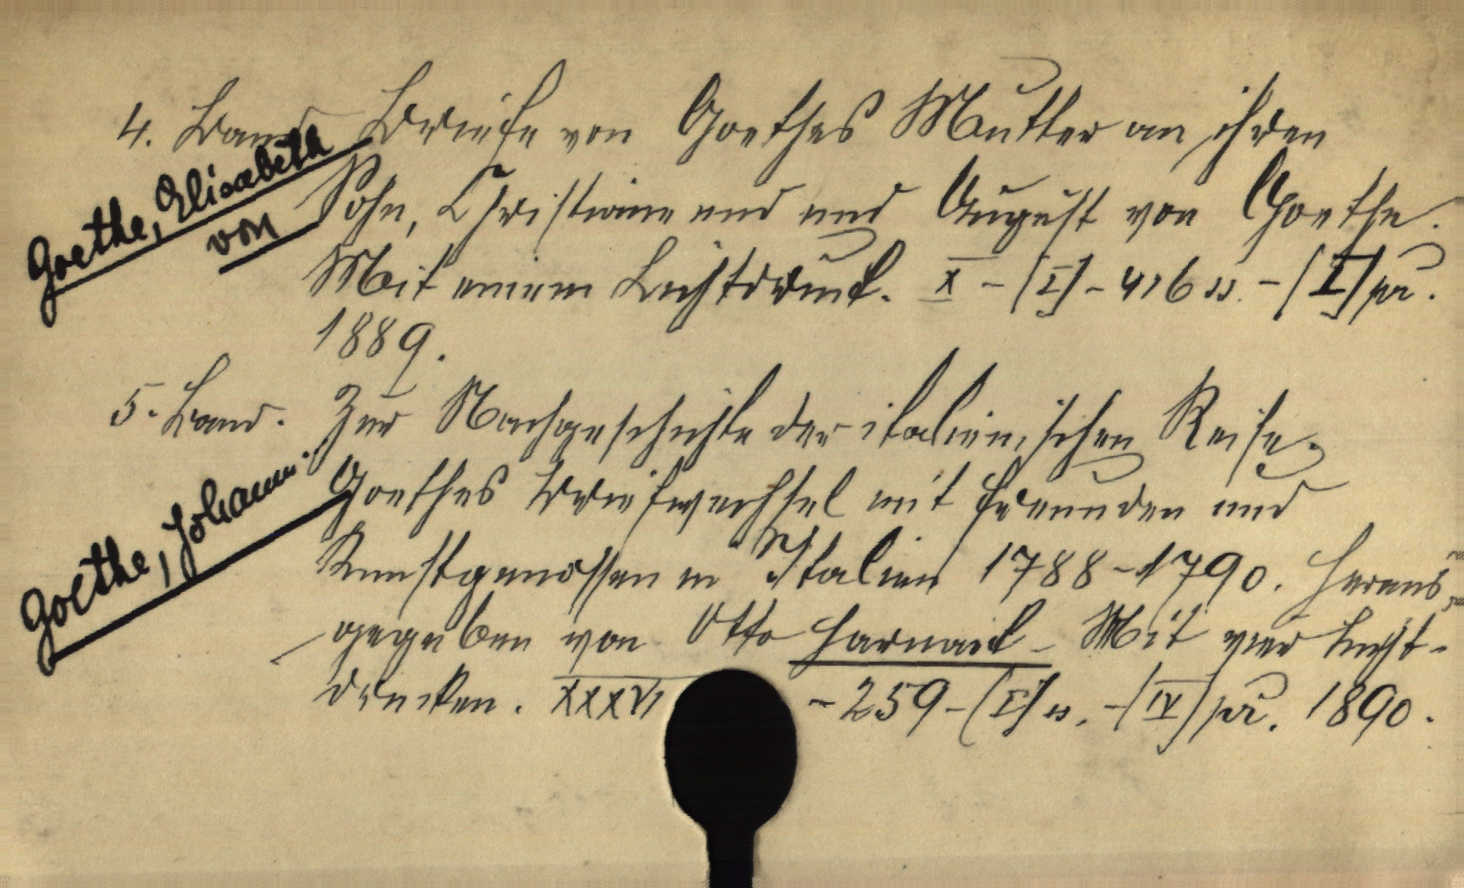 4. Band Briefe von Goethes Mutter an ihren
Goethe, Elisabeth
von
Sohn, Christiane und und August von Goethe.
Mit einem Lichtdruck. X - [I] - 416 ss. - [I] pa.
1889.
5. Band. Zur Nachgeschichte der italienischen Reise.
Goethe, Johann.
Goethes Briefwechsel mit Freunden und
Kunstgenossen in Italien 1788-1790. Heraus
gegeben von Otto Harnack - Mit vier Licht-
drucken. XXXVI - 259 - [I] ss. - [IV] pa. 1890.